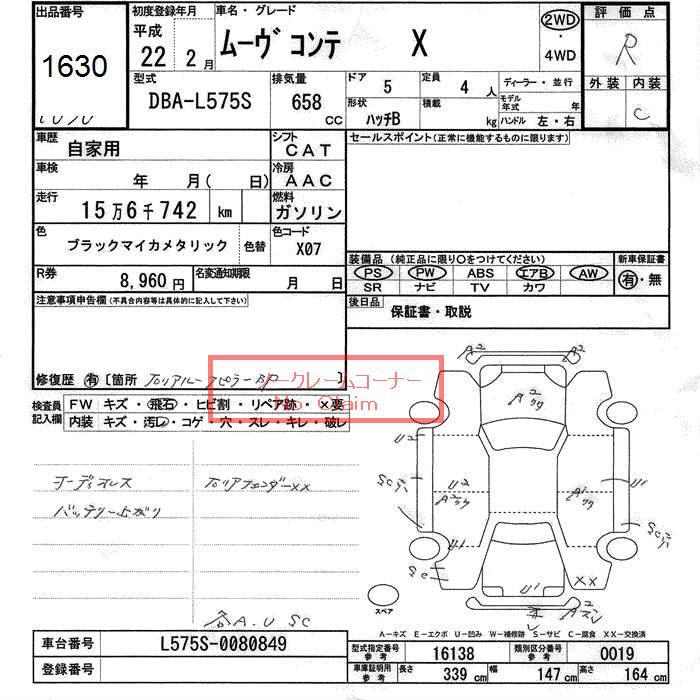 出品番号
1630
初度登録年月
平成
22 2月
車名・グレード
ムーヴ コンテ X
2WD
・
4WD
評価点
R
外装 内装
C
型式
DBA-L575S
排気量
658 cc
ドア
5
定員
4 人
ディーラー・並行
形状
ハッチB
積載
kg
モデル年式 年
ハンドル 左・右
車歴
自家用
シフト
CAT
車検
年 月( 日)
冷房
AAC
走行
15万6千742 km
燃料
ガソリン
色
ブラックマイカメタリック
色替
色コード
X07
R券
8,960 円
名変通知期限
月 日
セールスポイント(正常に機能するものに限ります)
装備品 (純正品に限り○をつけてください)
PS PW ABS エアB AW
SR ナビ TV カワ
新車保証書
有・無
後日品
保証書・取説
注意事項申告欄(不具合内容等は具体的に記入して下さい)
修復歴 有 [箇所 ]
ノークレームコーナー
No Claim
検査員
記入欄
FW キズ・飛石・ヒビ割・リペア跡・×要
内装 キズ・汚レ・コゲ・穴・スレ・キレ・破レ
オーディオレス
バッテリー上がり
右リアフェンダーXX
各A.U SC
A2
A2
A2
U2
U2
U1
U1
U1
SC
SC
XX
スペア
A-キズ E-エクボ U-凹み W-補修跡 S-サビ C-腐食 XX-交換済
車台番号
L575S-0080849
登録番号
型式指定番号
参考
16138
類別区分番号
参考
0019
車庫証明用
参考
長さ 339 cm 幅 147 cm 高さ 164 cm